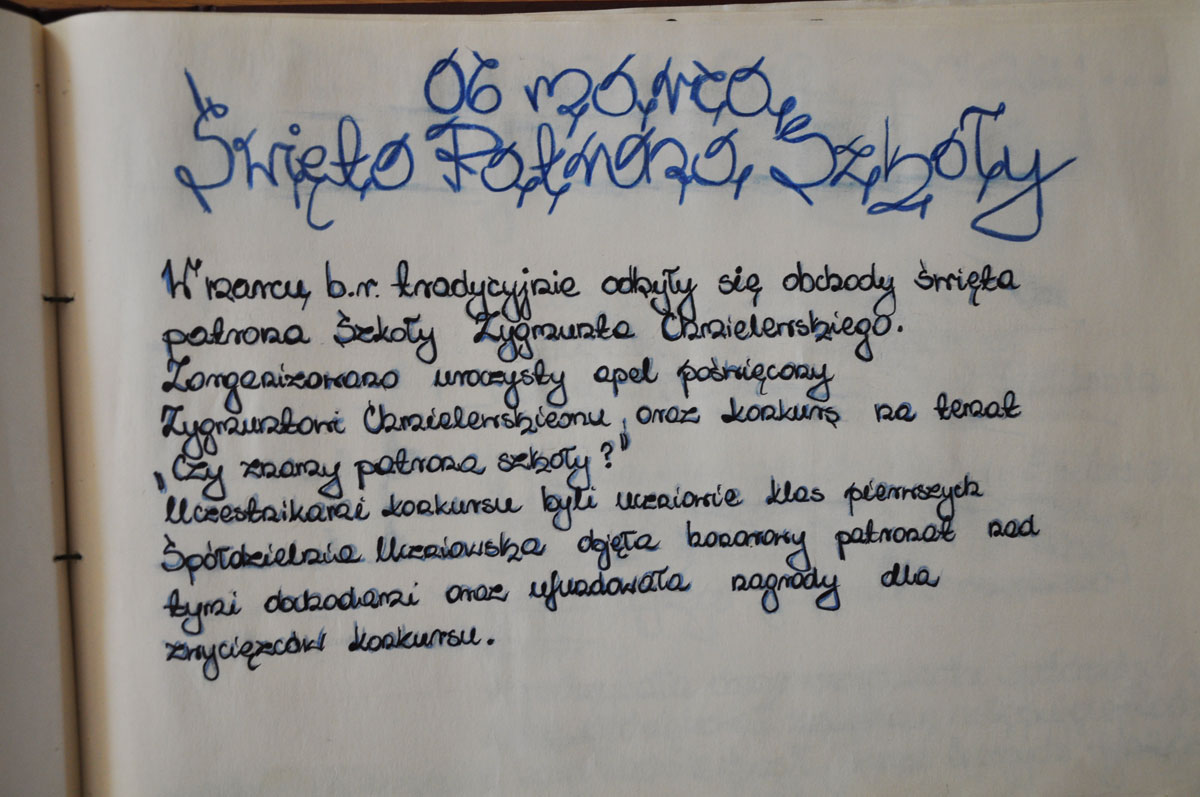 06 marca
Święto Patrona Szkoły
W marcu b.r. tradycyjnie odbyły się obchody święta
patrona Szkoły Zygmunta Chmielewskiego.
Zorganizowano uroczysty apel poświęcony
Zygmuntowi Chmielewskiemu, oraz konkurs na temat
„Czy znamy patrona szkoły?"
Uczestnikami konkursu byli uczniowie klas pierwszych
Spółdzielnia Uczniowska objęła honorowy patronat nad
tymi obchodami oraz ufundowała nagrody dla
zwycięzców konkursu.